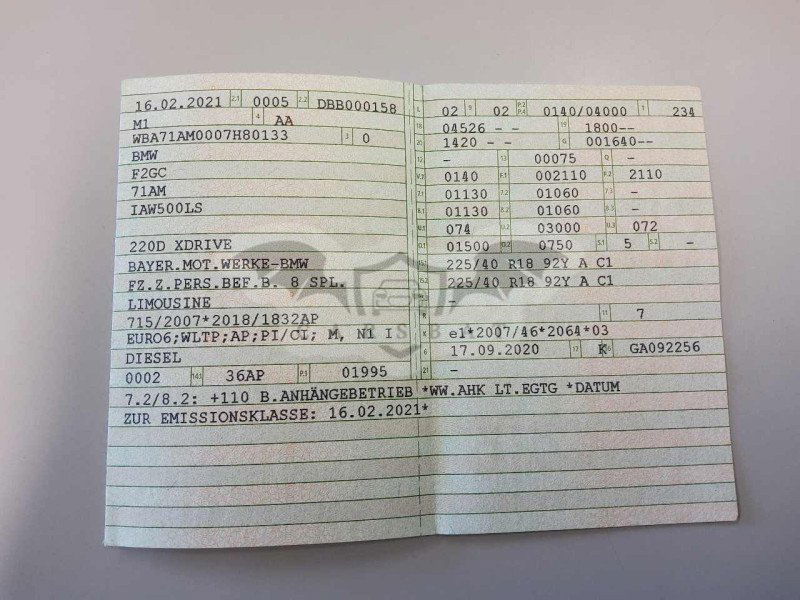 16.02.2021 2.1 0005 2.2 DBB000158
M1 4 AA
WBA71AM0007H80133 3 0
BMW
F2GC
71AM
IAW500LS
220D XDRIVE
BAYER.MOT.WERKE-BMW
FZ.Z.PERS.BEF.B. 8 SPL.
LIMOUSINE
715/2007*2018/1832AP
EURO6;WLTP;AP;PI/CI; M, N1 I
DIESEL
0002 14.1 36AP P.1 01995
7.2/8.2: +110 B.ANHÄNGEBETRIEB *WW.AHK LT.EGTG *DATUM
ZUR EMISSIONSKLASSE: 16.02.2021*
L 02 9 02 P.2 P.4 0140/04000 T 234
18 04526 - - 19 1800--
20 1420 - - G 001640--
12 - 13 00075 Q -
V.7 0140 F.1 002110 F.2 2110
7.1 01130 7.2 01060 7.3 -
8.1 01130 8.2 01060 8.3 -
U.1 074 U.2 03000 U.3 072
O.1 01500 O.2 0750 S.1 5 S.2 -
15.1 225/40 R18 92Y A C1
15.2 225/40 R18 92Y A C1
-
R 11 7
K e1*2007/46*2064*03
6 17.09.2020 17 K 16 GA092256
21 -